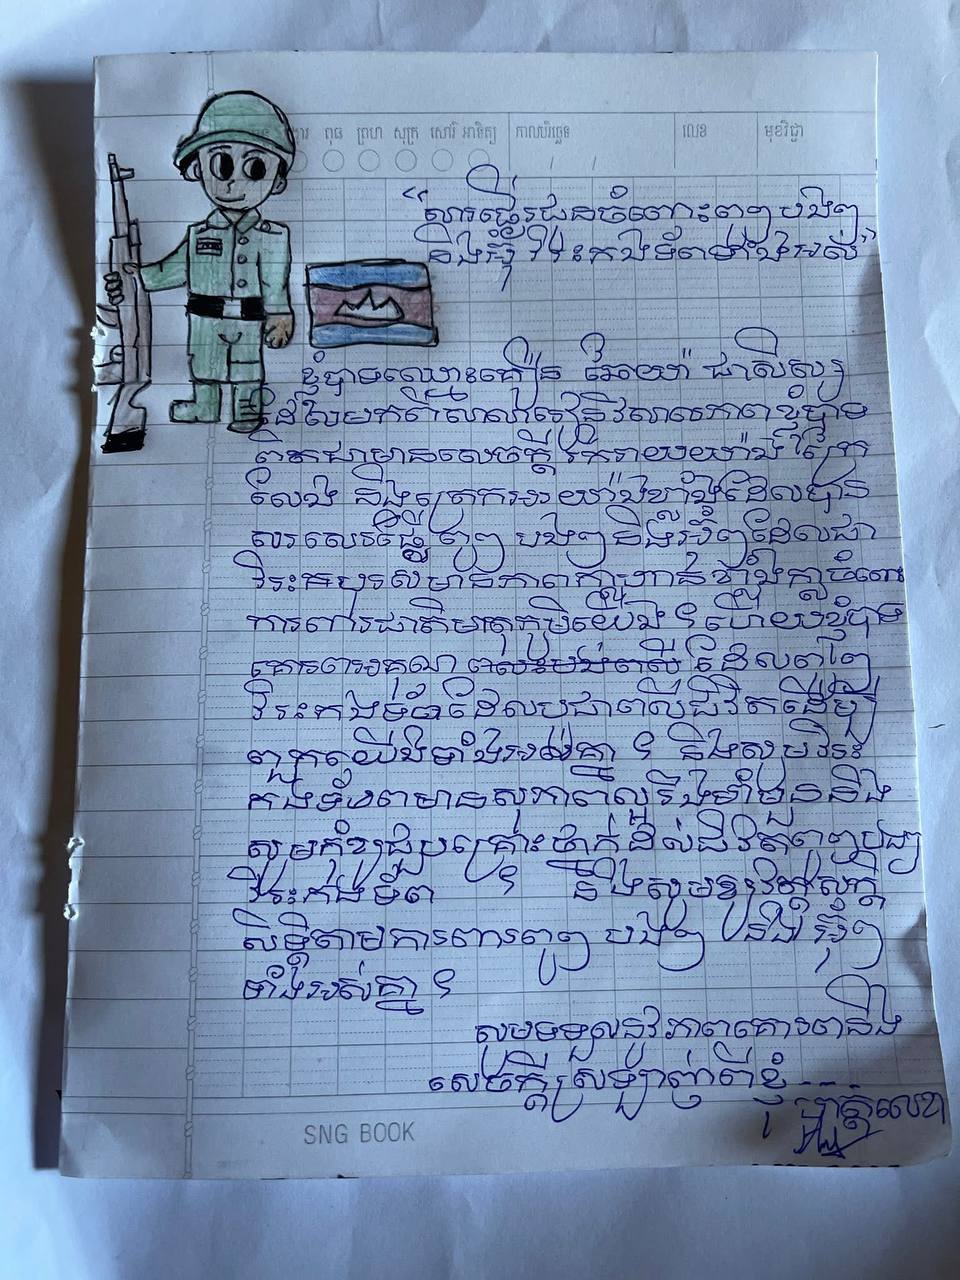 ពុធ ព្រហ សុក្រ សៅរ៍ អាទិត្យ កាលបរិច្ឆេទ / / លេខ មុខវិជ្ជា
“សារផ្ញើរជូនចំពោះពូៗ បងៗ
និងអ៊ុំ វីរះកងទ័ពទាំងអស់”
ខ្ញុំបាទឈ្មោះ ជាសិស្ស
ដែលមកពីសាលា ខ្ញុំបាទ
ពិតជាមានសេចក្ដីរីករាយយ៉ាងក្រៃ
លែង និងត្រេកអរយ៉ាងខ្លាំងដែលបាន
សរសេរផ្ញើពូៗ បងៗនិងអ៊ុំៗដែលជា
វិរះកបុរសមានភាពក្លាហានខ្លាំងក្លាចំពោះ
ការពារជាតិមាតុភូមិយើង ។ ហើយខ្ញុំបាទ
គោរពអរគុណ ដែលពូៗ
វិរះកងទ័ពដែលបូជាពលីជីវិតដើម្បី
ពួកយើងទាំងអស់គ្នា ។ និងសូមវិរះ
កងទ័ពមានសុភាពល្អរឹងមាំមួននិង
សូមកុំឱ្យជួបគ្រោះថ្នាក់ដល់ជីវិតពូៗបងៗ
វិរះកងទ័ព ។ និងសូមឱ្យវត្ថុស័ក្តិ
សិទ្ធិតាមការពារពូៗ បងៗ និង អ៊ុំៗ
ទាំងអស់គ្នា ។
សូមទទួលនូវភាពគោរពនិង
សេចក្ដីស្រឡាញ់ពីខ្ញុំ
ហត្ថលេខា
SNG BOOK